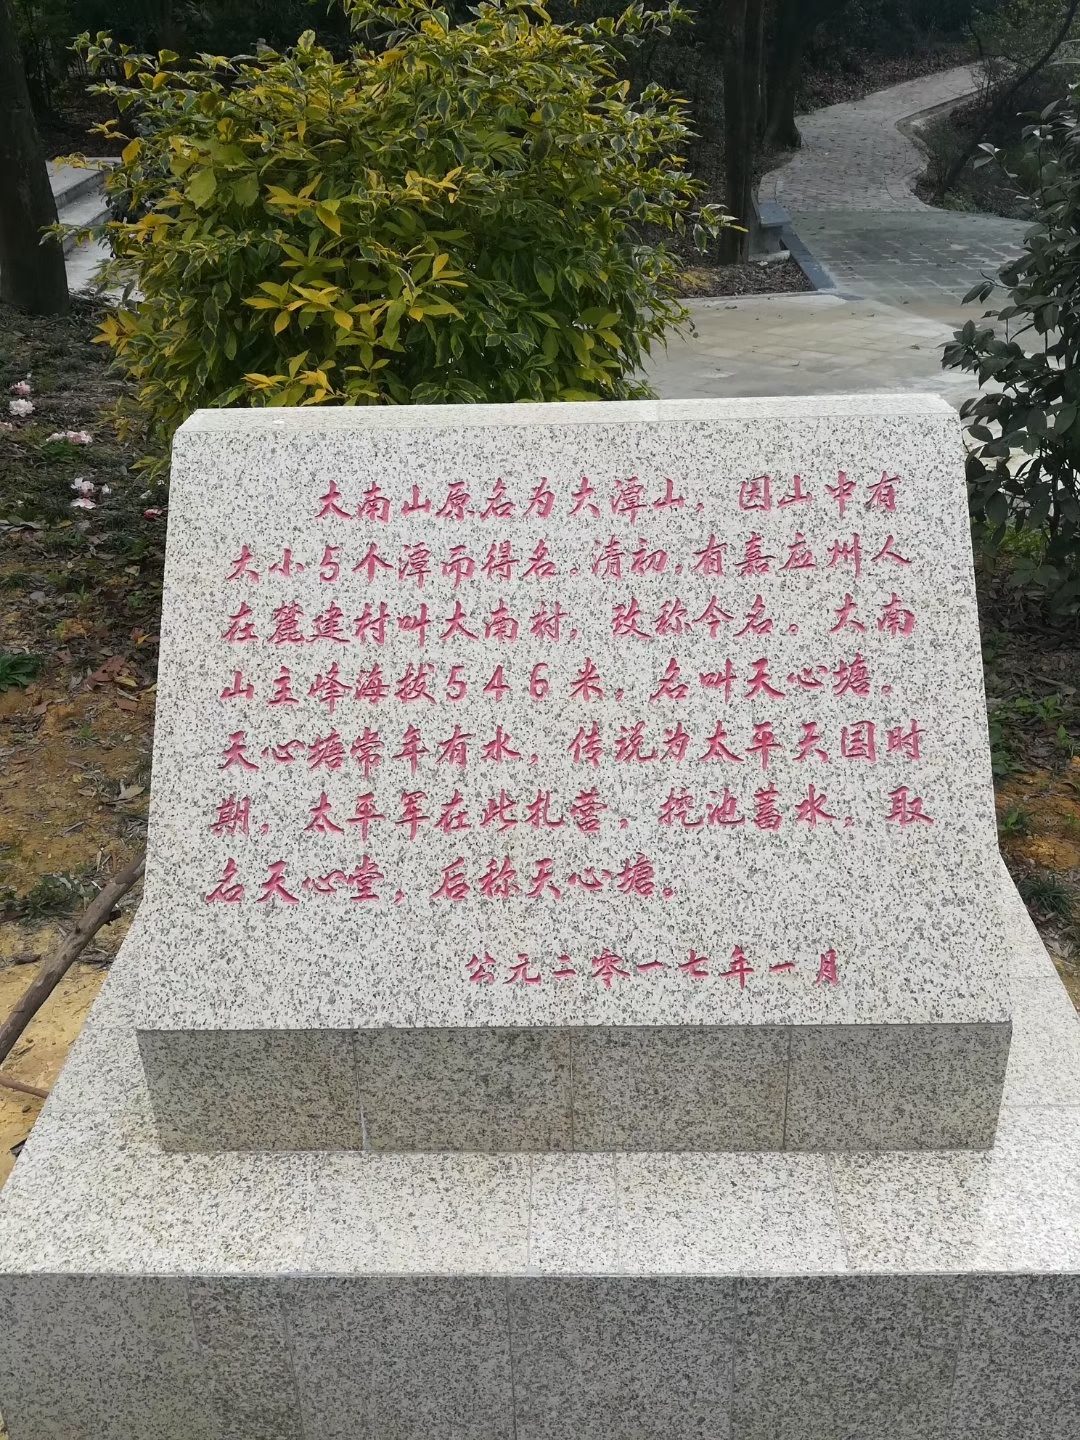 大南山原名为大潭山，因山中有
大小5个潭而得名。清初，有嘉应州人
在麓建村叫大南村，改称今名。大南
山主峰海拔546米，名叫天心塘。
天心塘常年有水，传说为太平天国时
期，太平军在此札营，挖池蓄水，取
名天心堂，后称天心塘。
公元二零一七年一月